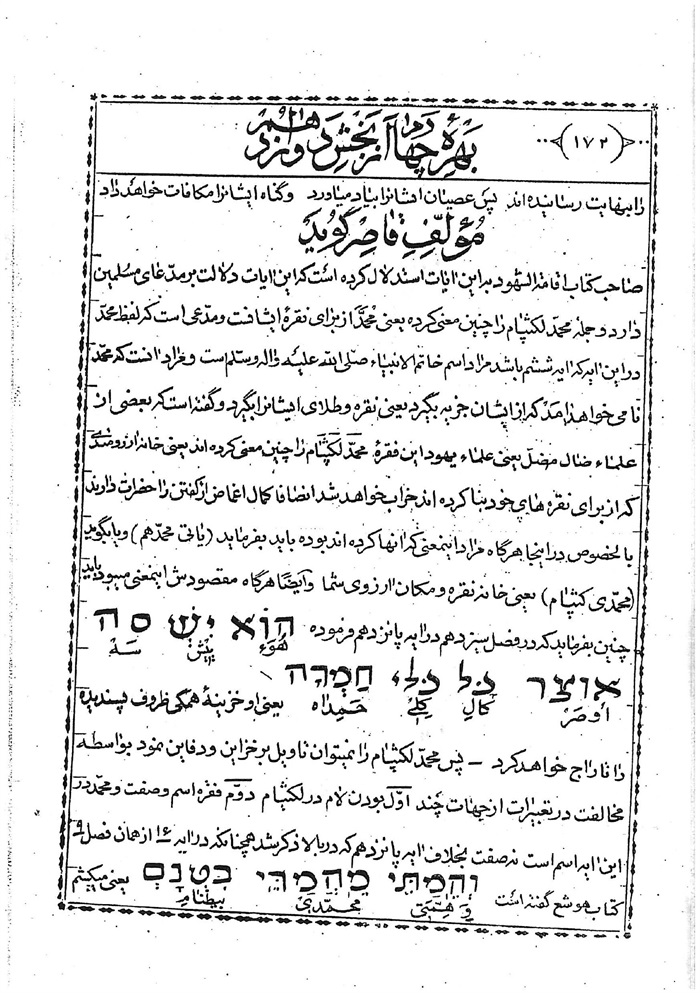 (۱۷۲) بهره چهارم از بخش دوازدهم
را بنهایت رسانیده اند پس عصیان ایشانرا بیاد میاورد و گناه ایشانرا مکافات خواهد داد
مؤلف قاصر گوید
صاحب کتاب اقامة الشهود به این ایات استدلال کرده است که این ایات دلالت بر مدعای مسلمین
دارد و جمله محمد لکثپام را چنین معنی کرده یعنی محمد از برای نقره ایشانست و مدعی است که لفظ محمد
در این ایه که ایه ششم باشد مراد اسم خاتم الانبیاء صلی الله علیه واله وسلم است و مراد انست که محمد
نامی خواهد امد که از ایشان جزیه بگیرد یعنی نقره و طلای ایشانرا بگیرد و گفته است که بعضی از
علماء ضال مضل یعنی علماء یهود این فقره محمد لکثپام را چنین معنی کرده اند یعنی خانه ارزومندی
که از برای نقره های خود بنا کرده اند خراب خواهد شد انصافا کمال اغماض از گفتن را حضرات دارند
بالخصوص در اینجا هرگاه مراد اینمعنی که انها کرده اند بوده باید بفرماید (یاتی محمدهم) و یا بگوید
(محمدی کثپام) یعنی خانه نقره و مکان ارزوی شما و ایضا هرگاه مقصودش اینمعنی میبود باید
چنین بفرماید که در فصل سیزدهم در ایه پانزدهم فرموده הוא ישסה
هوء یش سه
אוצר כל כלי חמדה
اوصر کال کلی حمداه یعنی او خزینه همکی ظروف پسندیده
را تاراج خواهد کرد – پس محمد لکثپام را نمیتوان تاویل بر خزاین و دفاین نمود بواسطه
مخالفت در تعبیرات از جهات چند اول بودن لام در لکثپام دوم فقره اسم وصفت و محمد در
این ایه اسم است نه صفت بخلاف ایه پانزدهم که در بالا ذکر شد همچنانکه در ایه ۱۶ از همان فصل ۹
והמתי מחמדי בטנם
کتاب هوشع گفته است و همتی محمدی بیطنام یعنی میکشم